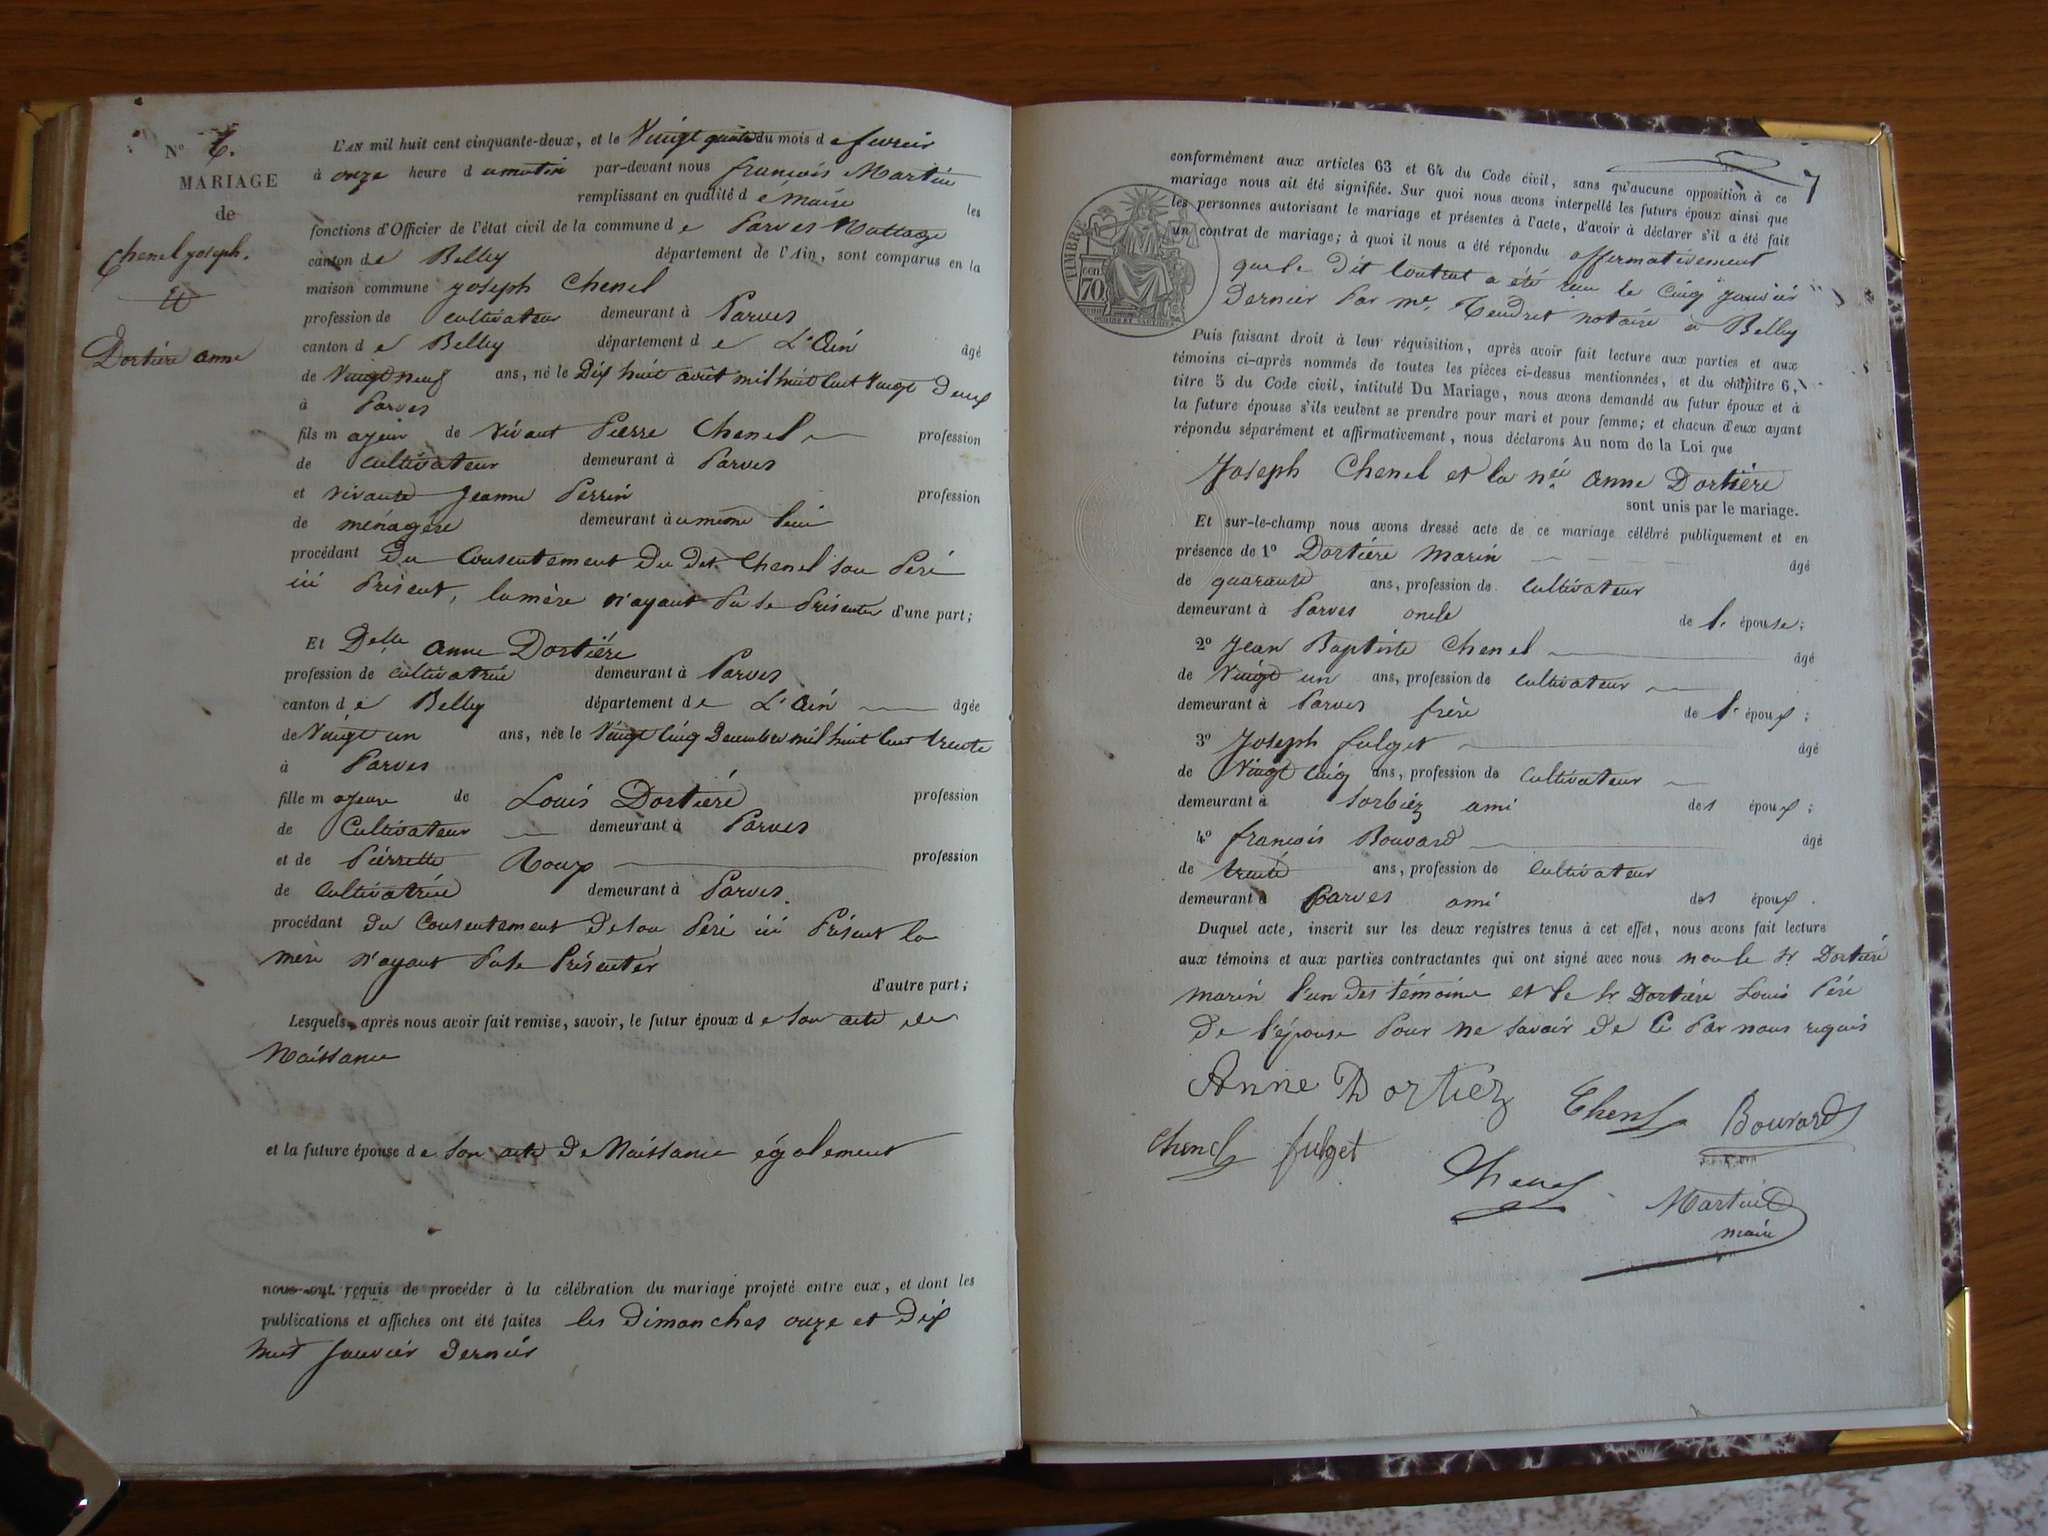 N° 6.
MARIAGE
de
Chenel joseph.
et
Dortière anne
L'AN mil huit cent cinquante-deux, et le Vingt quatre du mois de fevrier
à onze heure du matin par-devant nous françois Martin
remplissant en qualité de maire les
fonctions d'Officier de l'état civil de la commune de Parves Nattage
canton de Belley département de l'Ain, sont comparus en la
maison commune joseph Chenel
profession de cultivateur demeurant à Parves
canton de Belley département de L'Ain âgé
de Vingt neuf ans, né le Dix huit août mil huit cent vingt Deux
à Parves
fils majeur de vivant Pierre Chenel profession
de cultivateur demeurant à Parves
et vivante Jeanne Perrin profession
de ménagère demeurant à u même lieu
procédant Du Consentement Du dit Chenel son Père
ici Présent, la mère n'ayant Pu se Présenter d'une part;
Et Delle anne Dortière
profession de cultivatrice demeurant à Parves
canton de Belley département de L'Ain âgée
de Vingt un ans, née le Vingt Cinq Decembre mil huit cent trente
à Parves
fille majeure de Louis Dortière profession
de Cultivateur demeurant à Parves
et de Pierrette Roux profession
de Cultivatrice demeurant à Parves.
procédant du Consentement De son Père ici Présent la
mère n'ayant Pu se Présenter
d'autre part;
Lesquels, après nous avoir fait remise, savoir, le futur époux de son acte de
Naissance
et la future épouse de son acte De Naissance également
nous ont requis de procéder à la célébration du mariage projeté entre eux, et dont les
publications et affiches ont été faites les Dimanches onze et Dix
huit Janvier Dernier
7
conformément aux articles 63 et 64 du Code civil, sans qu'aucune opposition à ce
mariage nous ait été signifiée. Sur quoi nous avons interpellé les futurs époux ainsi que
les personnes autorisant le mariage et présentes à l'acte, d'avoir à déclarer s'il a été fait
un contrat de mariage; à quoi il nous a été répondu affirmativement
que le Dit Contrat a été reçu le Cinq janvier
Dernier Par me. Tendret notaire à Belley
TIMBRE
cen. 70
Puis faisant droit à leur réquisition, après avoir fait lecture aux parties et aux
témoins ci-après nommés de toutes les pièces ci-dessus mentionnées, et du chapitre 6,
titre 5 du Code civil, intitulé Du Mariage, nous avons demandé au futur époux et à
la future épouse s'ils veulent se prendre pour mari et pour femme; et chacun d'eux ayant
répondu séparément et affirmativement, nous déclarons Au nom de la Loi que
Joseph Chenel et la née anne Dortière
sont unis par le mariage.
Et sur-le-champ nous avons dressé acte de ce mariage célébré publiquement et en
présence de 1° Dortière Marin âgé
de quarante ans, profession de cultivateur
demeurant à Parves oncle de l'épouse;
2° Jean Baptiste Chenel âgé
de Vingt un ans, profession de cultivateur
demeurant à Parves frère de l'époux;
3° Joseph fulget âgé
de Vingt Cinq ans, profession de cultivateur
demeurant à Sorbiéz ami des époux;
4° françois Bouvard âgé
de trente ans, profession de cultivateur
demeurant à Parves ami des époux.
Duquel acte, inscrit sur les deux registres tenus à cet effet, nous avons fait lecture
aux témoins et aux parties contractantes qui ont signé avec nous non le Sr Dortière
marin l'un des témoins et le Sr Dortière Louis Père
De l'épouse Pour ne savoir De Ce Par nous requis
Anne Dortiez Chenel Bouvard
Chenel fulget
Chenel Martin
maire